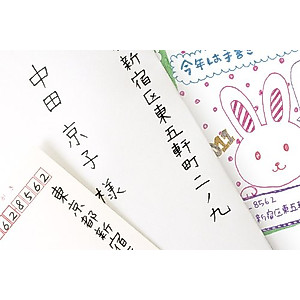 新宿区東五軒町二ノ九
中田 京子 様
628562
東京都新宿
今年は手書き
-8562
新宿区東五